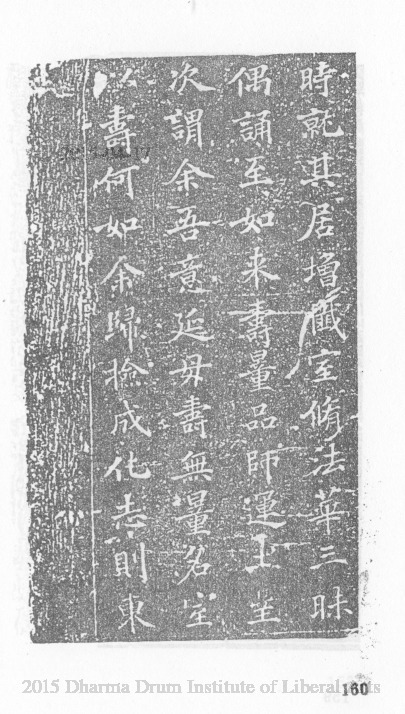 時就其居增懺室脩法華三昧
偶誦至如来壽量品師運上坐
次謂余吾意延母壽無量名室
以壽何如余歸捡成化志則東
2015 Dharma Drum Institute of Liberal Arts
160